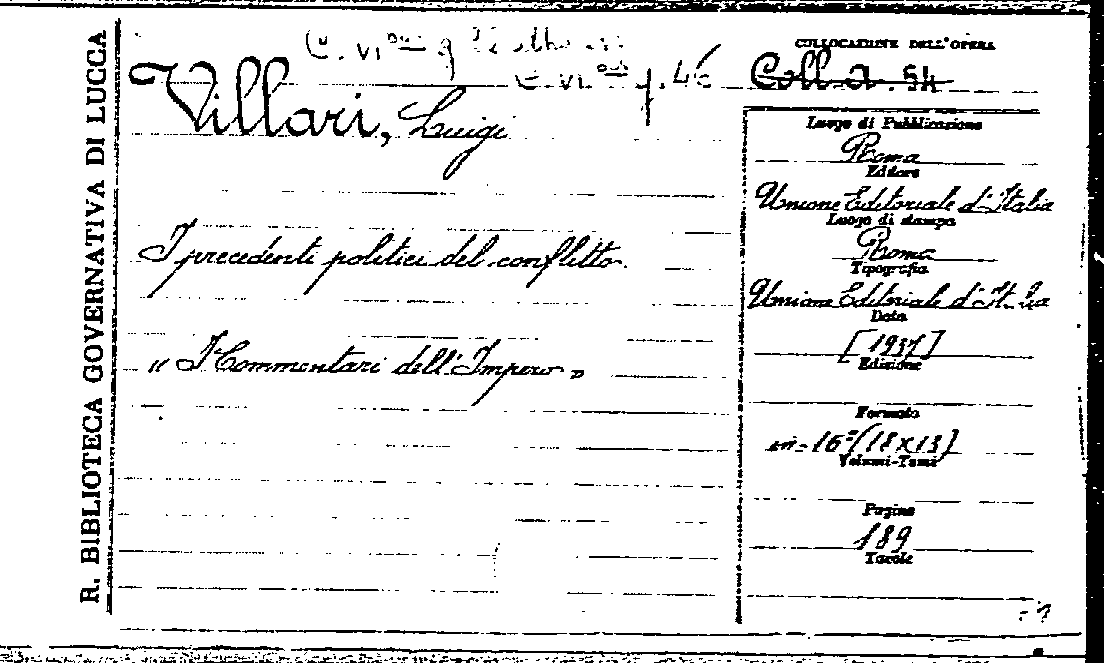 R. BIBLIOTECA GOVERNATIVA DI LUCCA
COLLOCAZIONE DELL'OPERA
C. VI
C. VI f. 46
Coll. a. 54
Villari, Luigi
I precedenti politici del conflitto.
" I Commentari dell'Impero "
Luogo di Pubblicazione
Roma
Editore
Unione Editoriale d'Italia
Luogo di stampa
Roma
Tipografia
Unione Editoriale d'Italia
Data
[1937]
Edizione
Formato
in-16° (18x13)
Volumi-Tomi
Pagine
189
Tavole